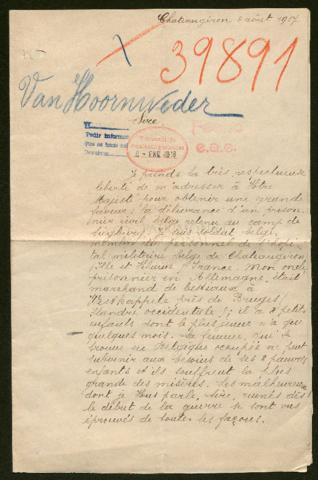 Chateaugiron 2 août 1917
39891
Van Hoornweder
Sire
Pedir informes
8 - ENE 1918
Je prends la très respectueuse
liberté de m'adresser à Votre
Majesté pour obtenir une grande
faveur: la délivrance d'un prison
nier civil belge retenu au camp de
Je suis soldat belge,
membre du personnel de l'hôpi
tal militaire belge de Chateaugiron
(Ille et Vilaine) France. Mon oncle
prisonnier en Allemagne, était
marchand de bestiaux à
Westkappelle près de Bruges
(Flandre occidentale); il a 8 petits
enfants dont le plus jeune n'a que
quelques mois. La femme, qui se
trouve en Belgique occupée ne peut
subvenir aux besoins de ses 8 pauvres
enfants et ils souffrent la plus
grande des misères. Les malheureux
dont je Vous parle, Sire, ruinés dès
le début de la guerre se sont vus
éprouvés de toutes les façons.